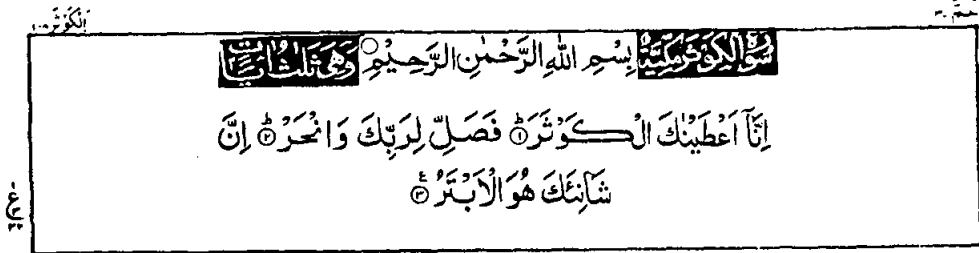 عمّ ٣٠
الكوثر ١٠٨
سُوْرَةُ الْكَوْثَرِ مَكِّيَّةٌ بِسْمِ اللهِ الرَّحْمٰنِ الرَّحِيْمِ وَهِىَ ثَلٰثُ اٰيَاتٍ
اِنَّاۤ اَعْطَيْنٰكَ الْكَوْثَرَ ۝١ فَصَلِّ لِرَبِّكَ وَانْحَرْ ۝٢ اِنَّ
شَانِئَكَ هُوَ الْاَبْتَرُ ۝٣